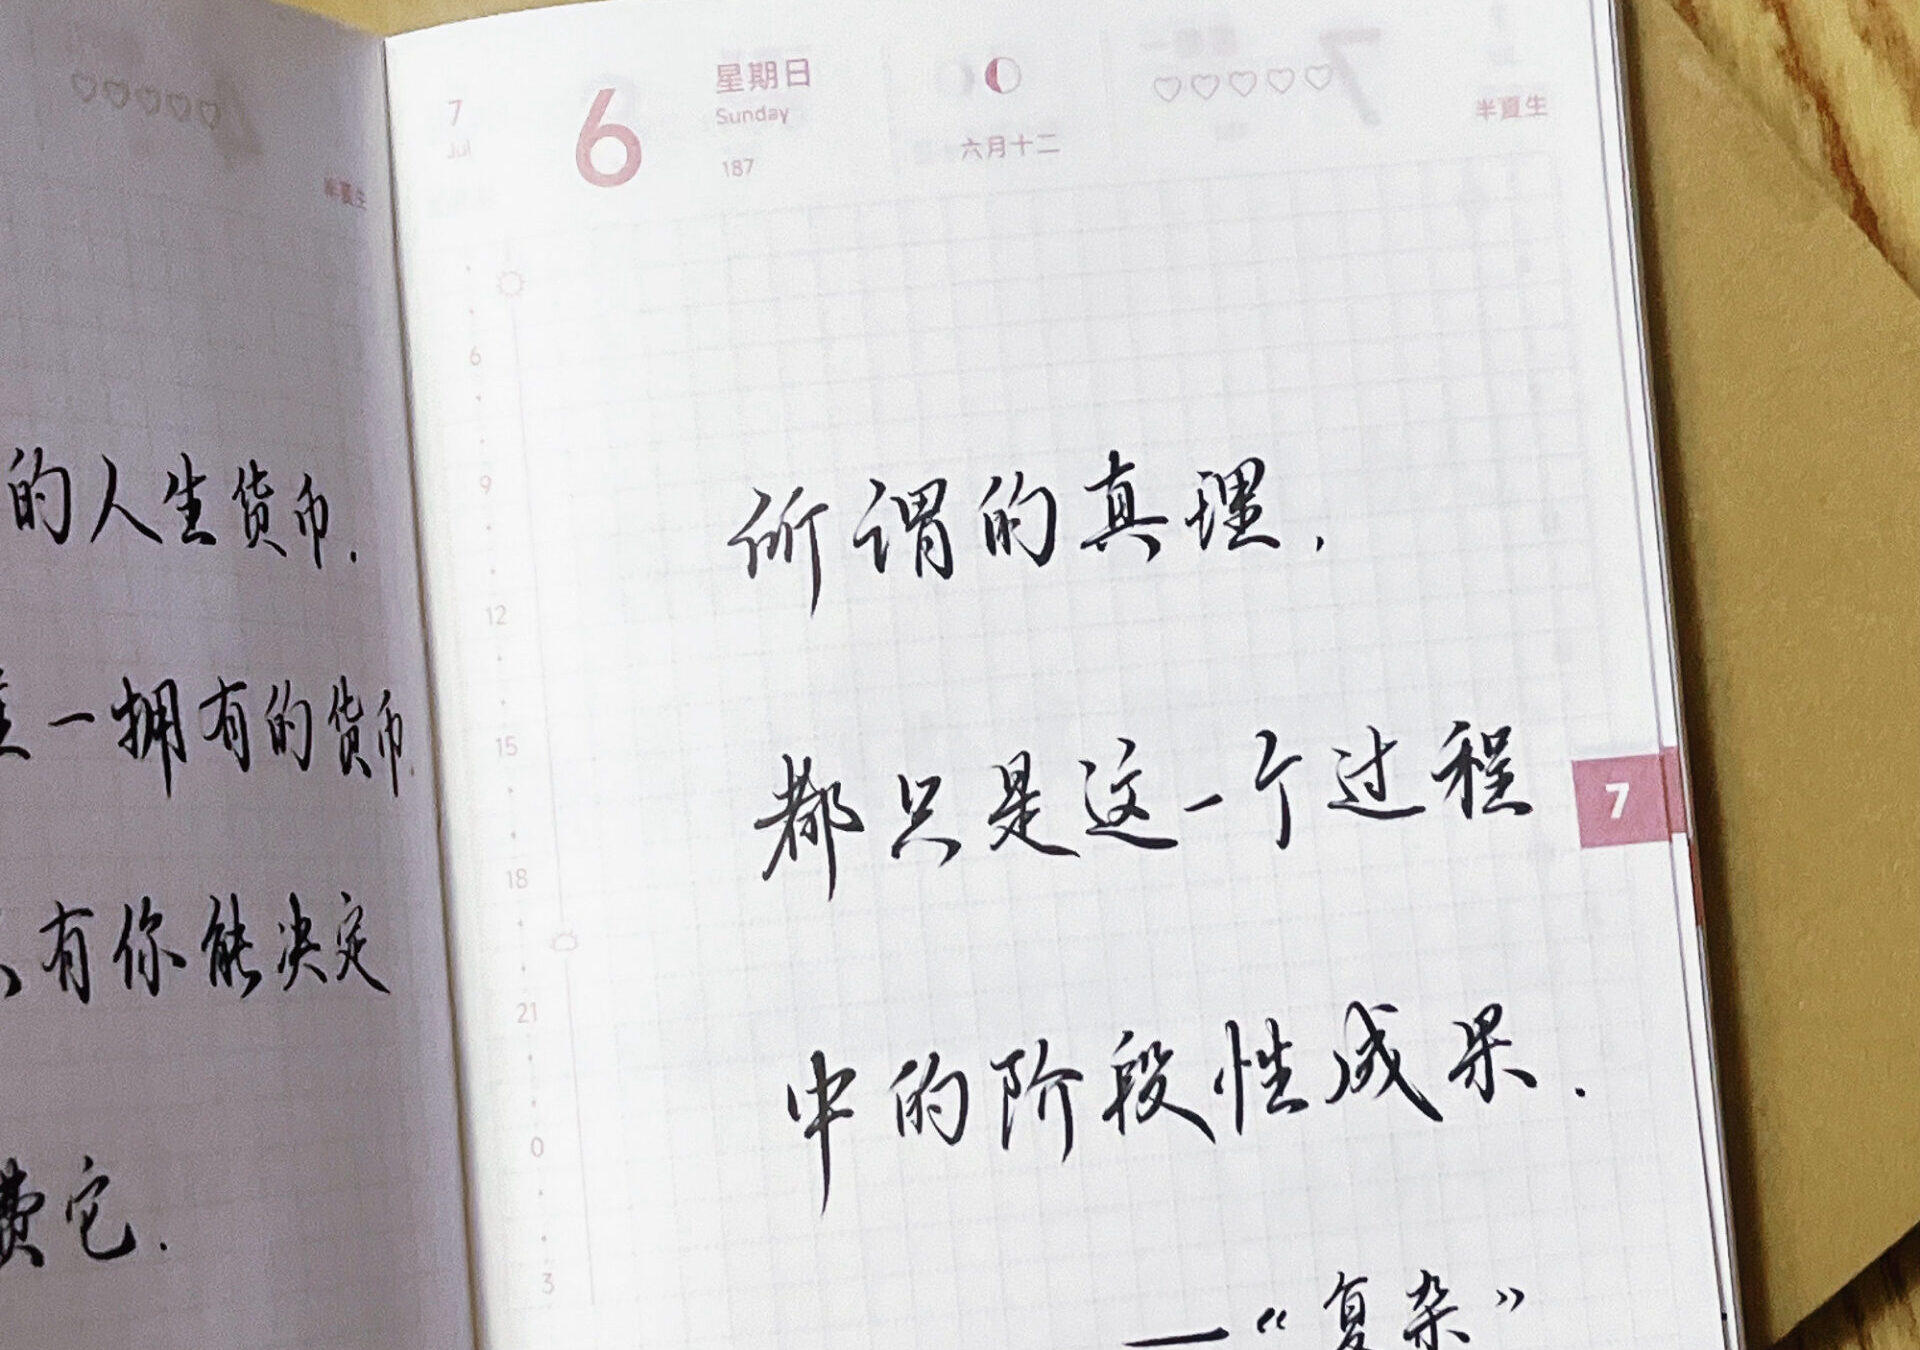 半夏生
的人生货币.
一拥有的货币.
有你能决定
费它.
7
Jul
6
星期日
Sunday
187
六月十二
半夏生
6
9
12
15
18
21
0
3
所谓的真理,
都只是这一个过程
中的阶段性成果.
—“复杂”
7